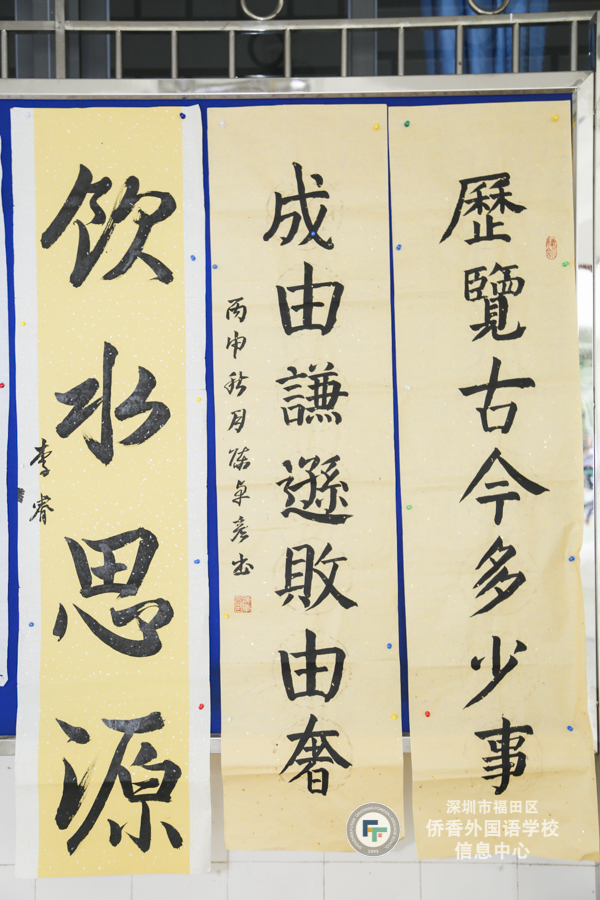 歷覽古今多少事
成由謙遜敗由奢
丙申秋月陈卓彦书
飲水思源
李睿
深圳市福田区
侨香外国语学校
信息中心